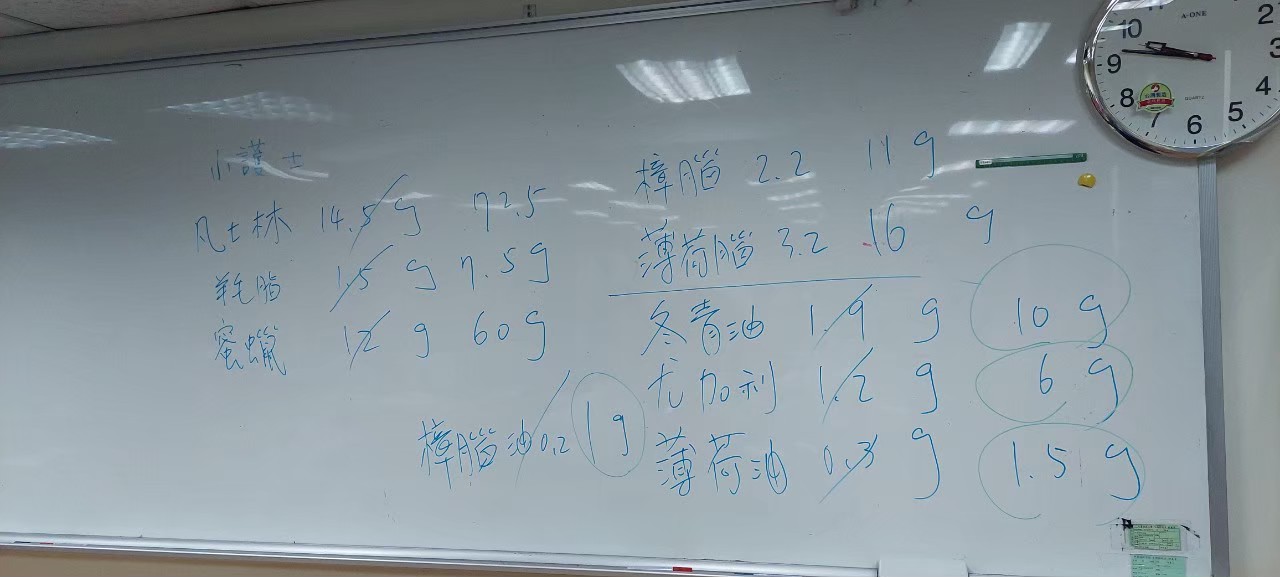 小護士
凡士林 14.5 g 72.5
羊毛脂 1.5 g 7.5g
蜜蠟 12 g 60g
樟腦油 0.2 1g
樟腦 2.2 11 g
薄荷腦 3.2 16 g
冬青油 1.9 g 10 g
尤加利 1.2 g 6 g
薄荷油 0.3 g 1.5 g
A-ONE
10 2
9 3
8 4
7 6 5
QUARTZ